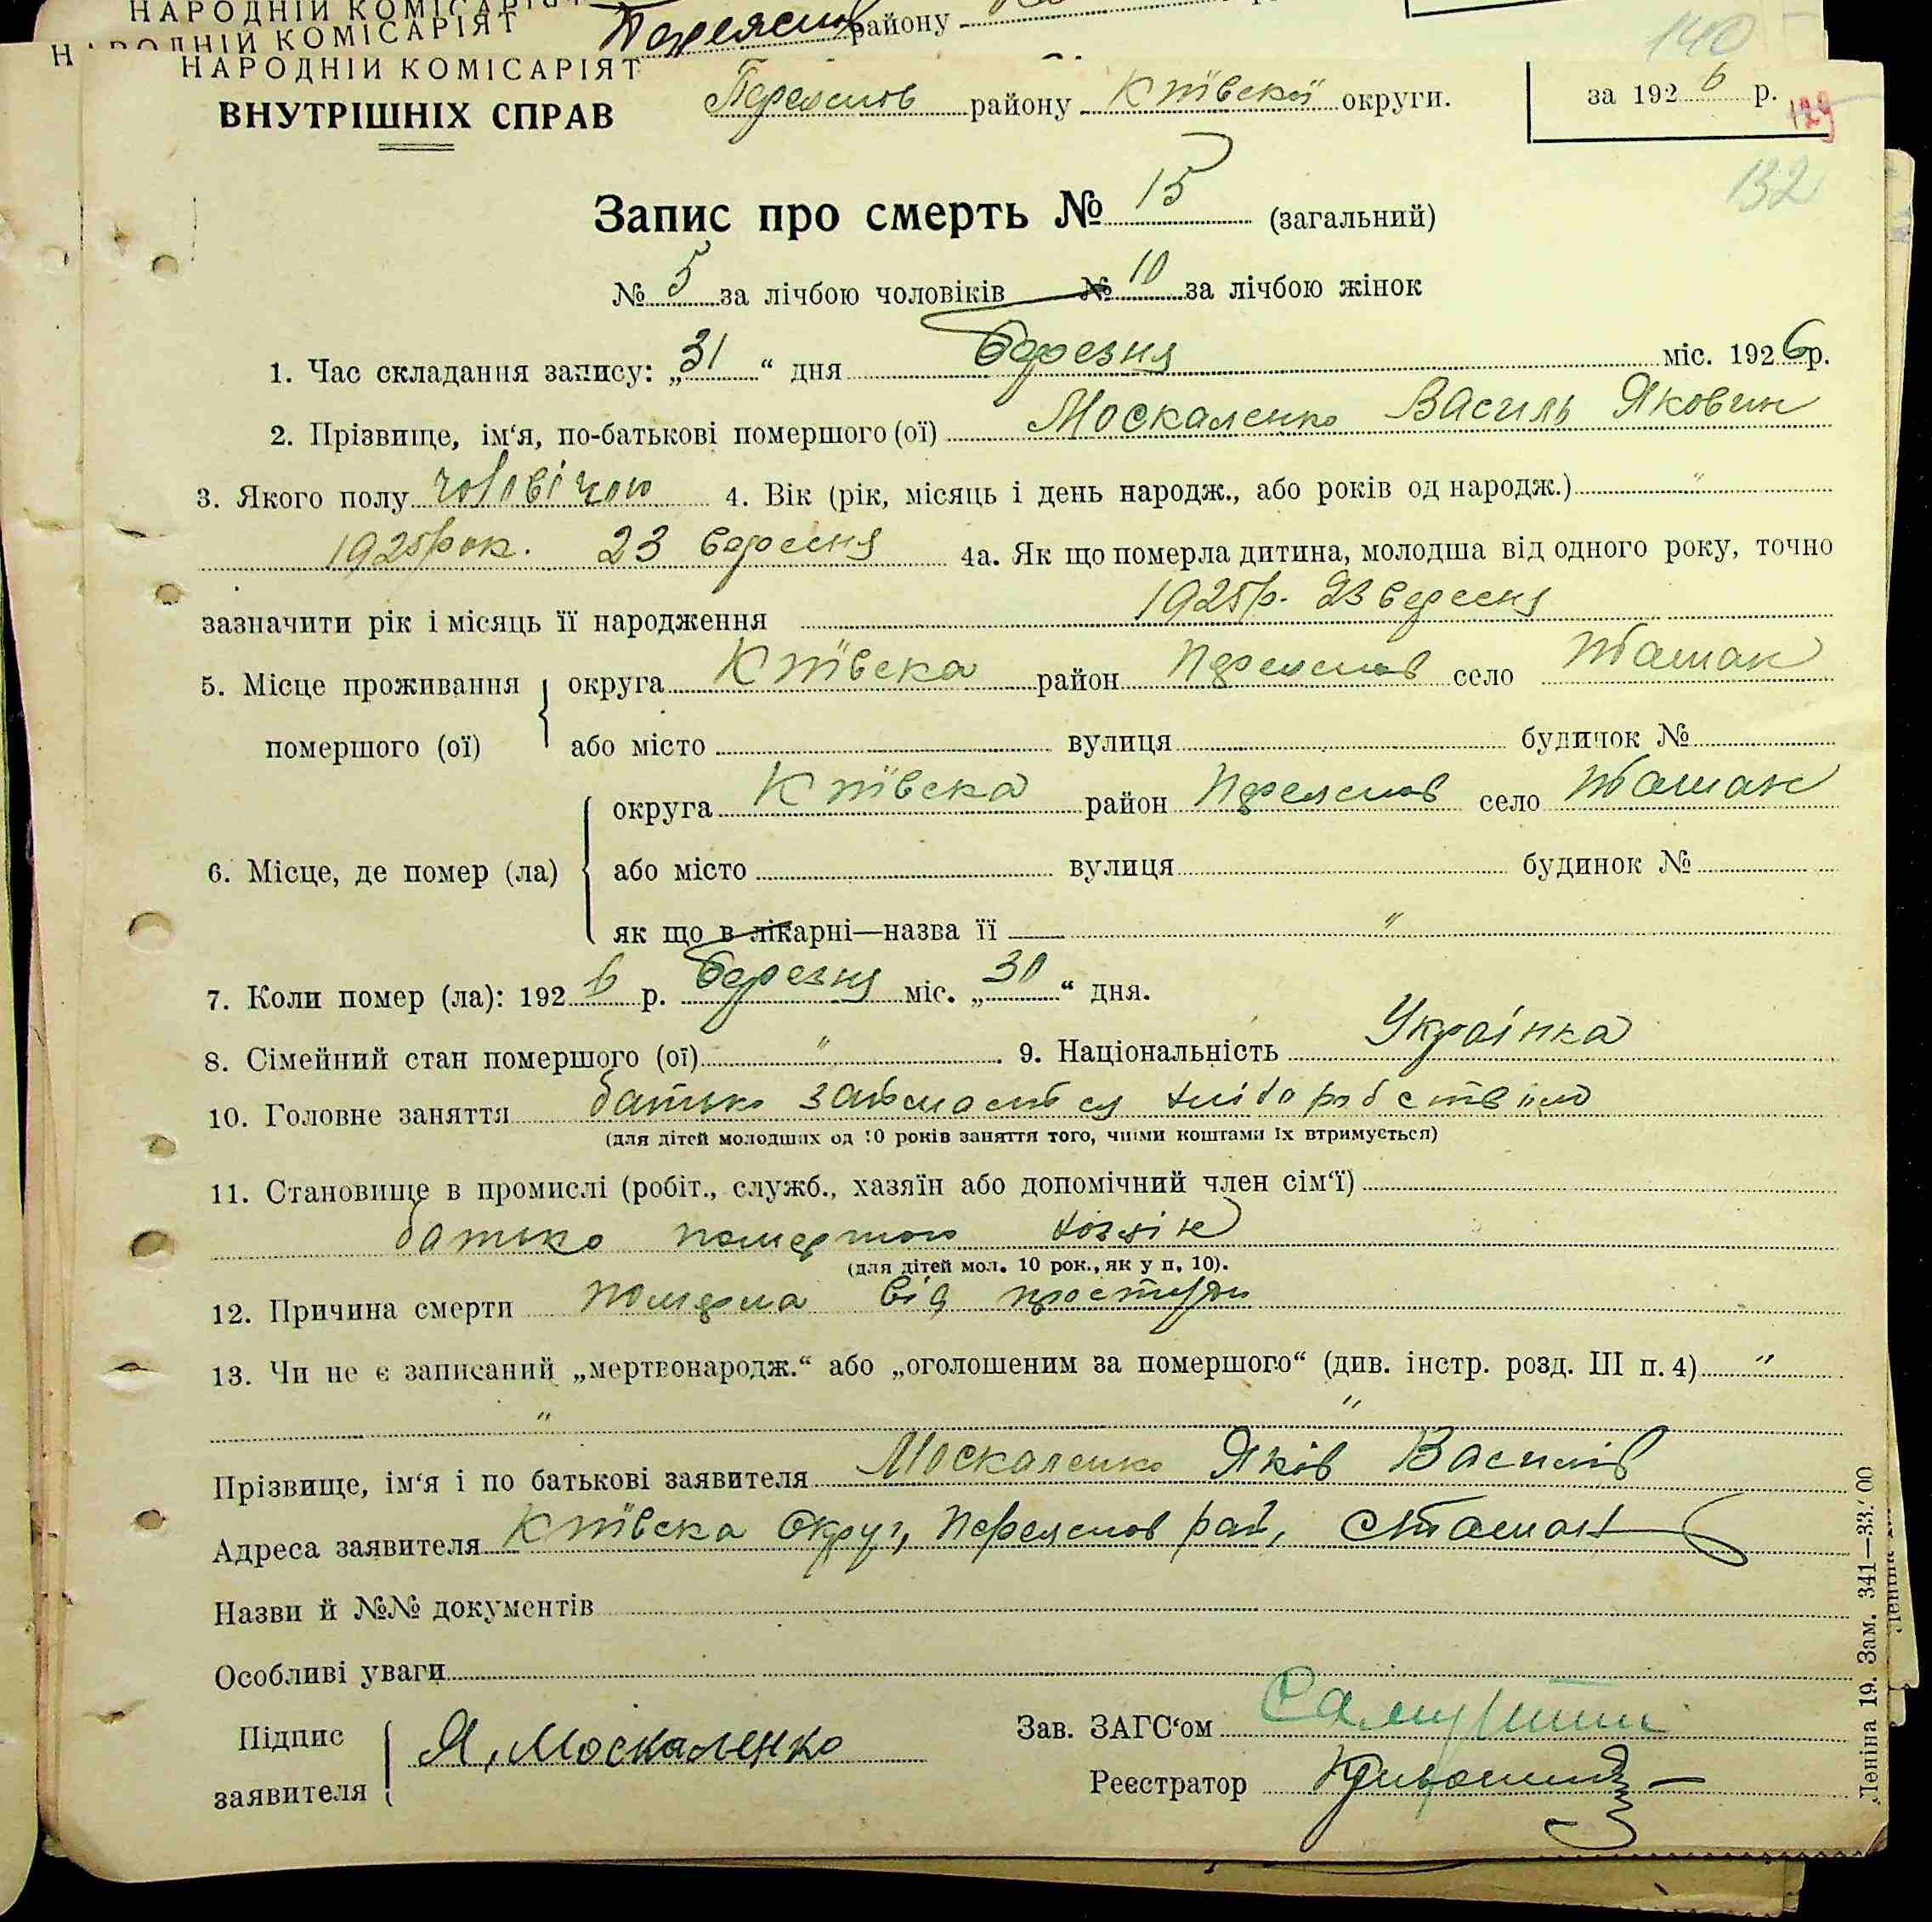 НАРОДНІЙ КОМІСАРІЯТ
НАРОДНІЙ КОМІСАРІЯТ
Переяслов району
140
НАРОДНІЙ КОМІСАРІЯТ
ВНУТРІШНІХ СПРАВ
Переяслов району Київскої округи.
за 1926 р.
129
132
Запис про смерть № 15 (загальний)
№ 5 за лічбою чоловіків № 10 за лічбою жінок
1. Час складання запису: „31“ дня березня міс. 1926 р.
2. Прізвище, ім‘я, по-батькові помершого (ої) Москаленко Василь Якович
3. Якого полу чоловічого 4. Вік (рік, місяць і день народж., або років од народж.) "
1925 рок. 23 вересня 4а. Як що померла дитина, молодша від одного року, точно
зазначити рік і місяць її народження 1925 р. 23 вересня
5. Місце проживання помершого (ої) округа Київска район Переяслов село Ташан
або місто вулиця будинок №
6. Місце, де помер (ла) округа Київска район Переяслов село Ташан
або місто вулиця будинок №
як що в лікарні—назва її "
7. Коли помер (ла): 1926 р. березня міс. „30“ дня.
8. Сімейний стан помершого (ої) " 9. Національність Українка
10. Головне заняття батько займается хліборобством
(для дітей молодших од 10 років заняття того, чиїми коштами їх втримується)
11. Становище в промислі (робіт., служб., хазяїн або допомічний член сім‘ї)
батько померлого хозяін
(для дітей мол. 10 рок., як у п. 10).
12. Причина смерти померла від простуди
13. Чи не є записаний „мертвонародж.“ або „оголошеним за помершого“ (див. інстр. розд. III п. 4) "
" "
Прізвище, ім‘я і по батькові заявителя Москаленко Яків Василів
Адреса заявителя Київска Округ, Переяслов рай, с Ташан
Назви й №№ документів
Особливі уваги
Підпис заявителя Я, Москаленко
Зав. ЗАГС‘ом
Реєстратор
Леніна 19. Зам. 341—33.